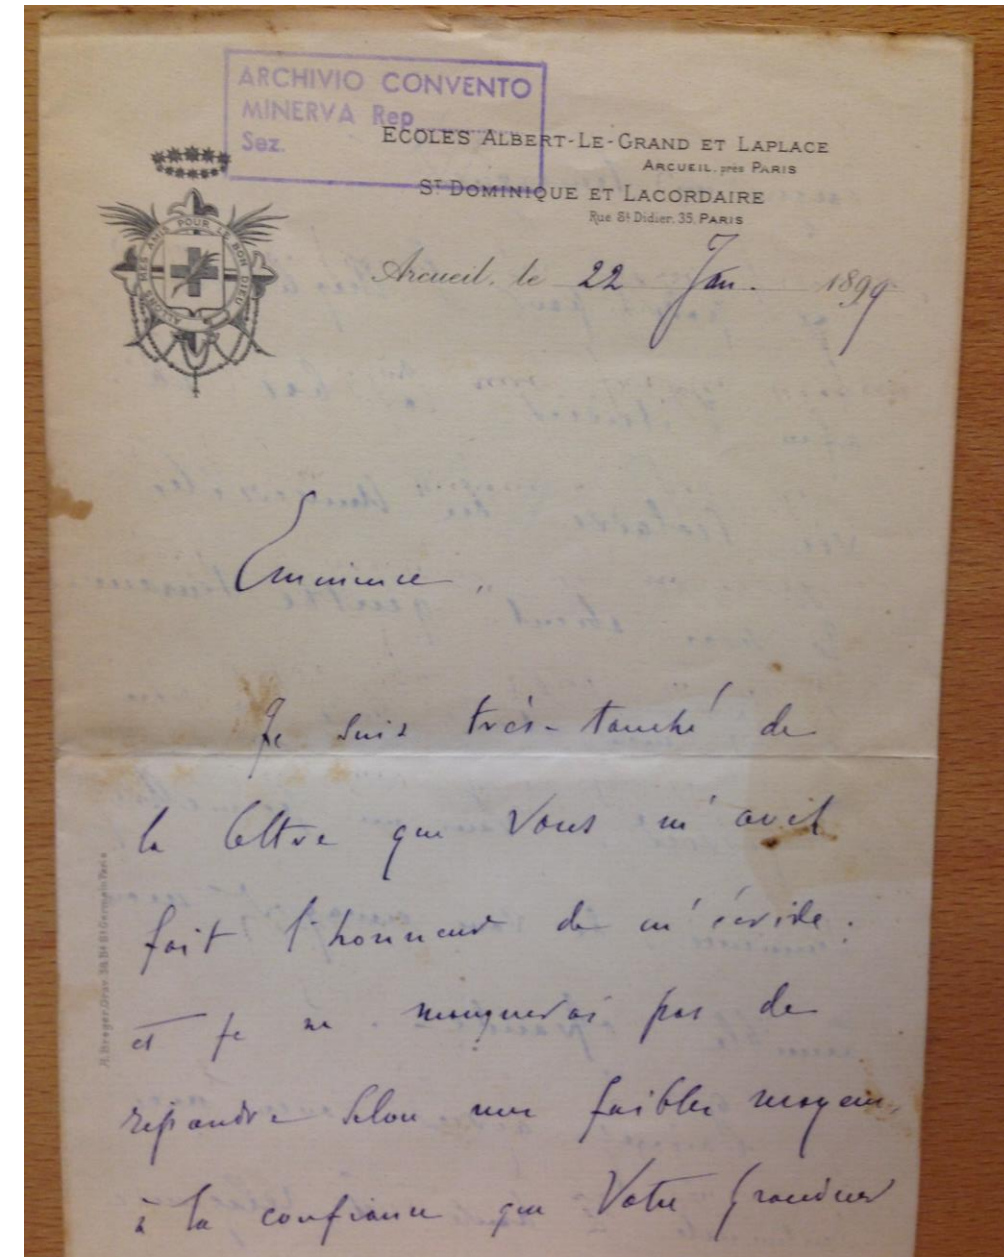 ARCHIVIO CONVENTO
MINERVA Rep
Sez.
ECOLES ALBERT-LE-GRAND ET LAPLACE
ARCUEIL, près PARIS
ST DOMINIQUE ET LACORDAIRE
Rue St Didier, 35, PARIS
ALLONS MES AMIS POUR LE BON DIEU
Arcueil, le 22 Jan. 1899
Eminence,
Je suis très-touché de
la lettre que Vous m'avez
fait l'honneur de m'écrire :
et je ne manquerai pas de
répondre selon mes faibles moyens,
à la confiance que Votre Grandeur